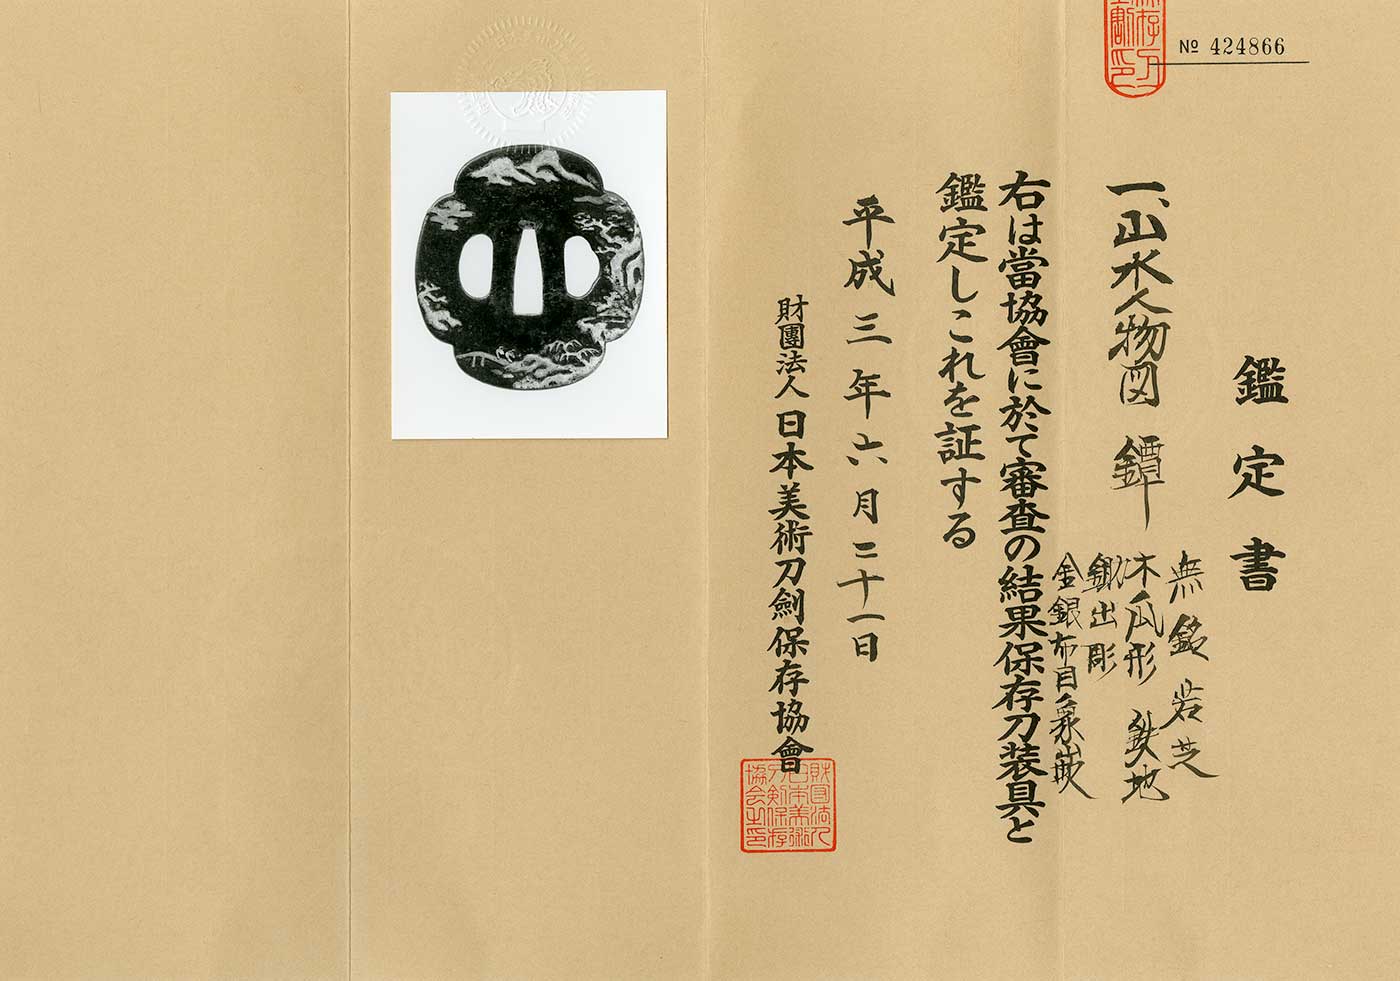 № 424866
鑑定書
一、山水人物図 鐔
無銘 若芝
木瓜形 鉄地
鋤出彫
金銀布目象嵌
右は當協會に於て審査の結果保存刀装具と
鑑定しこれを証する
平成三年六月二十一日
財團法人日本美術刀劍保存協會
財団法人
日本美術
刀剣保存
協会之印